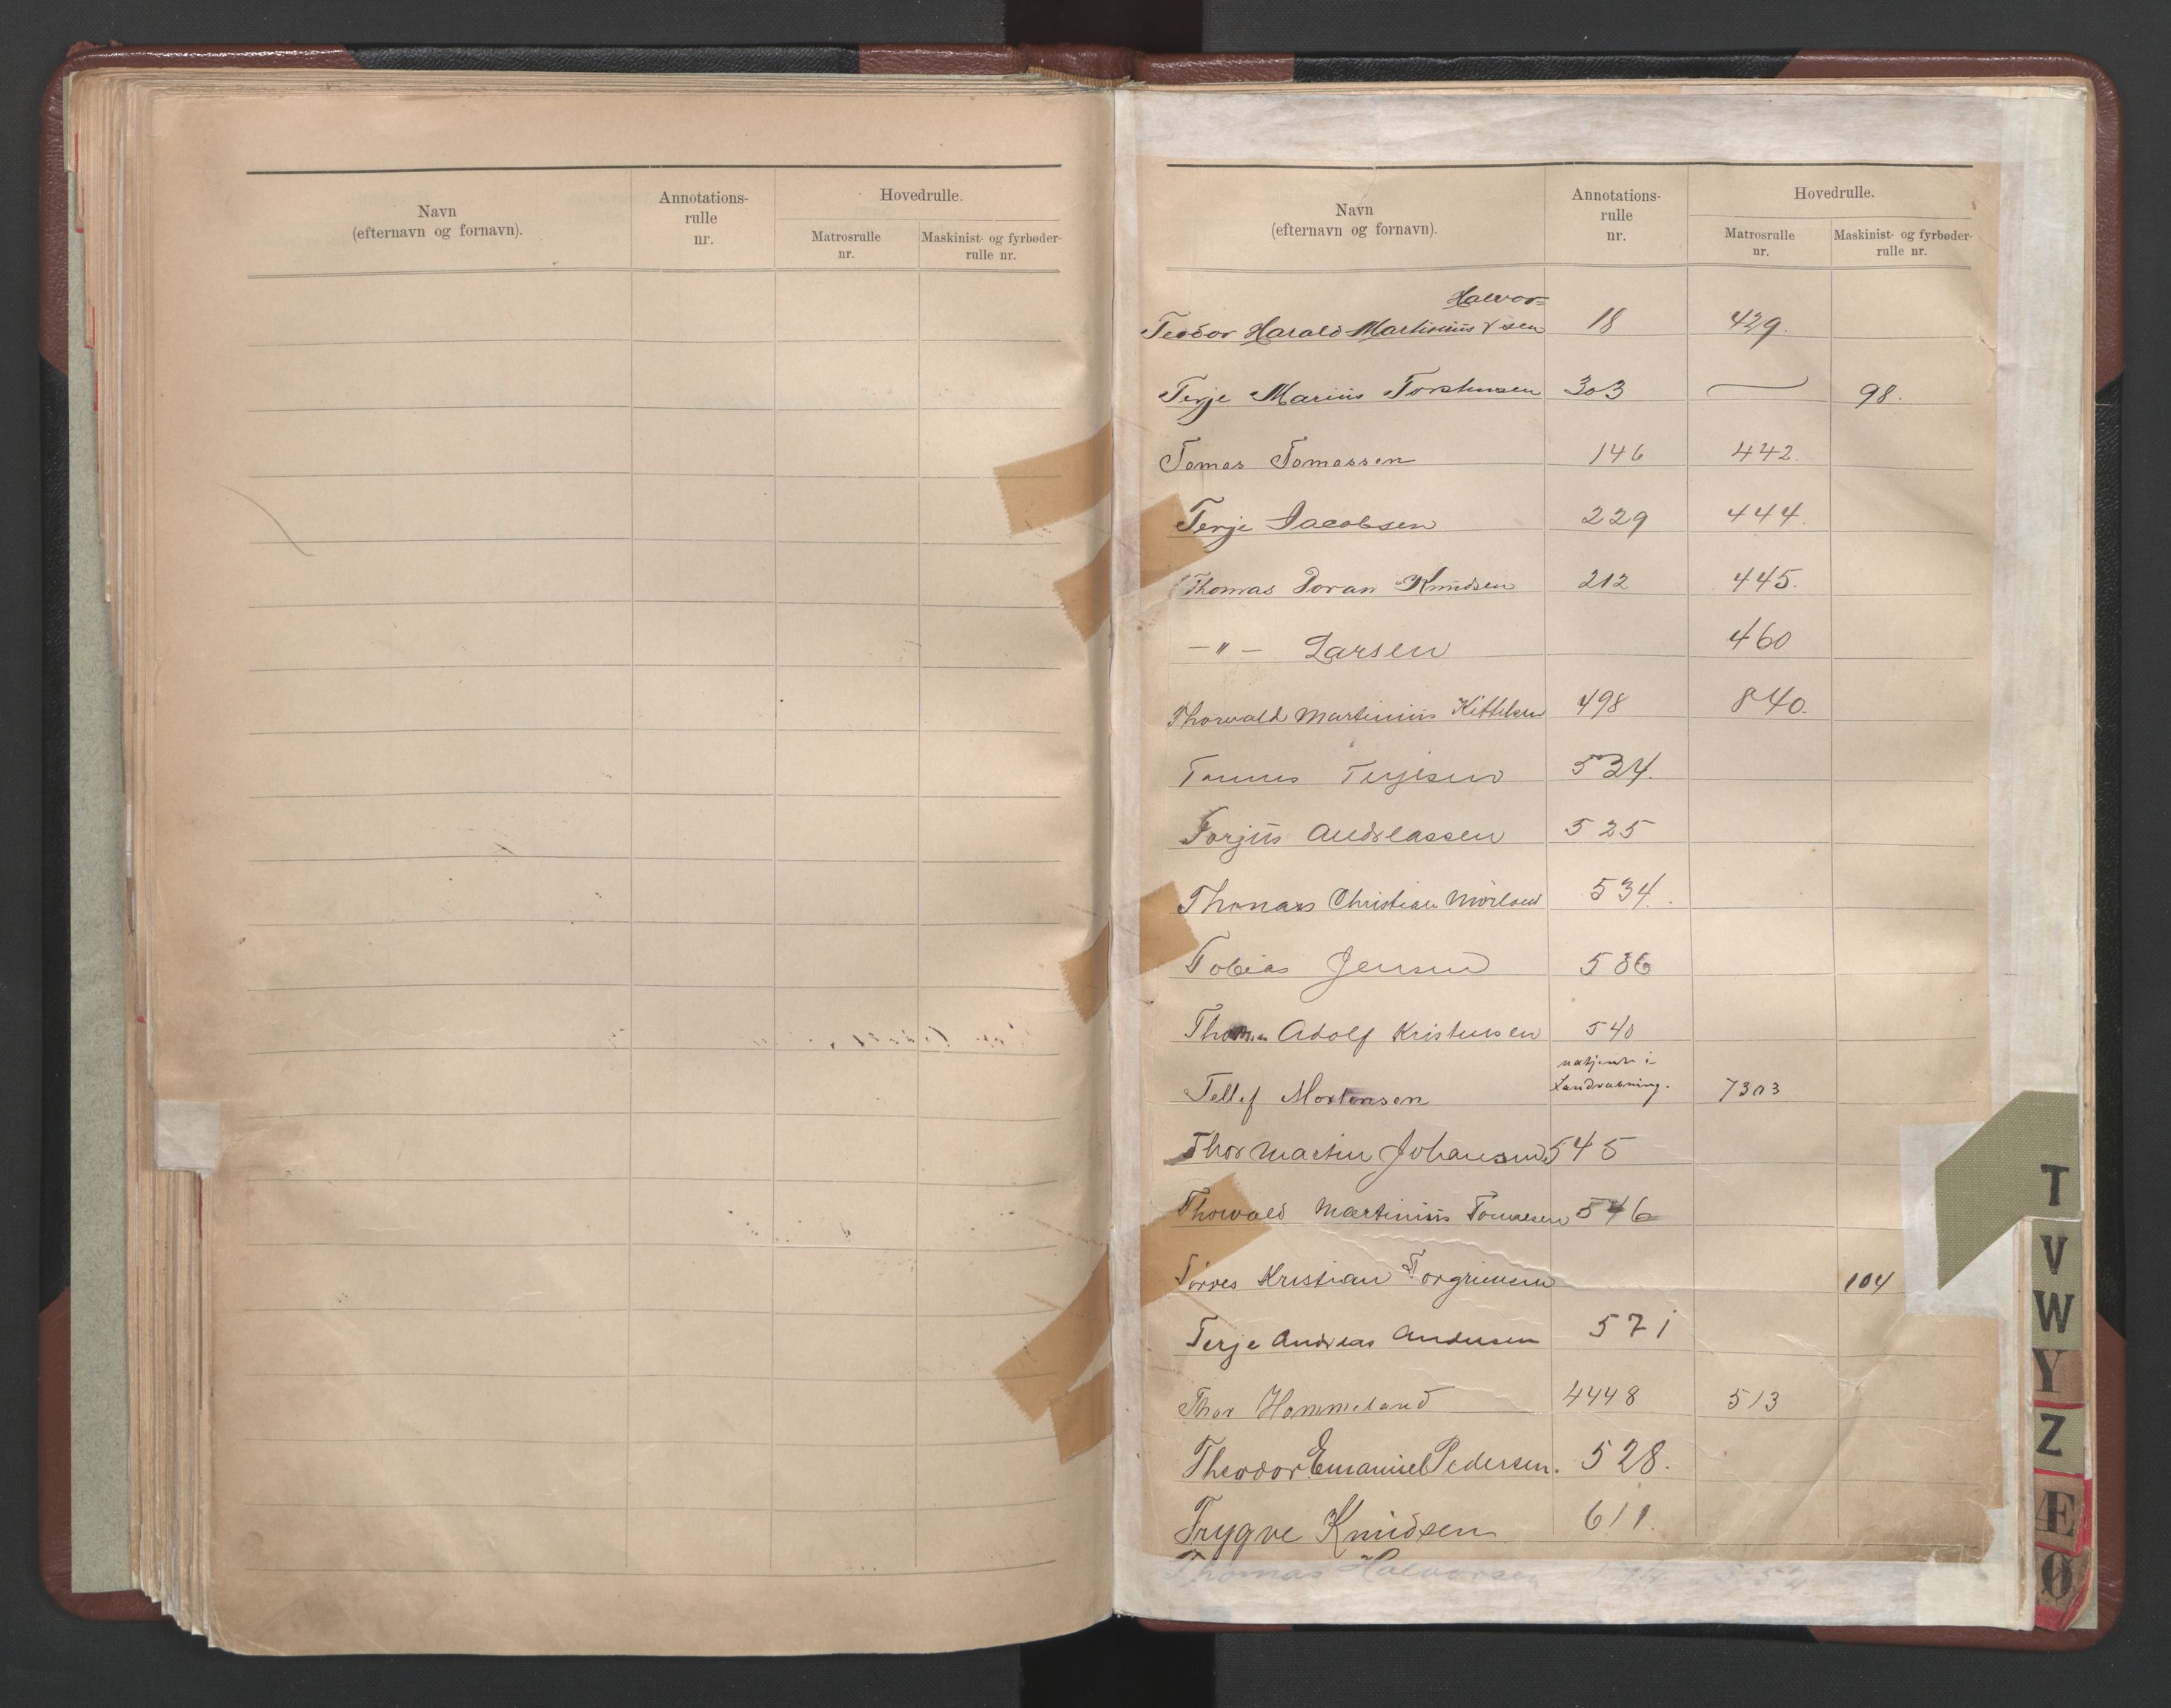 Navn
(efternavn og fornavn).
Annotations-
rulle
nr.
Hovedrulle.
Matrosrulle
nr.
Maskinist- og fyrbøder-
rulle nr.
Navn
(efternavn og fornavn).
Annotations-
rulle
nr.
Hovedrulle.
Matrosrulle
nr.
Maskinist- og fyrbøder-
rulle nr.
Halvor=
Teodor Harald Martinius sen 18 429.
Terje Marius Torstensen 303 — 98.
Tomas Tomassen 146 442.
Terje Jacobsen 229 444.
Thomas Knudsen 212 445.
— " — Larsen 460
Thorvald Martinius Kittelsen 498 840.
Terjesen 524.
Torjus Andreassen 525
Thomas Christian 534.
Tobias Jensen 536
Adolf Kristensen 540
i
Landværning.
Tellef Mortensen 7303
Thor Martin Johansen 545
Thorvald Martinius 546
Kristian Torgrimsen 104
Terje Andreas Andersen 571
Thor Hommeland 4448 513
Theodor Emanuel Pedersen. 528.
Trygve Knudsen 611.
Thomas Halvorsen
T
V
W
Y
Z
Æ
Ø